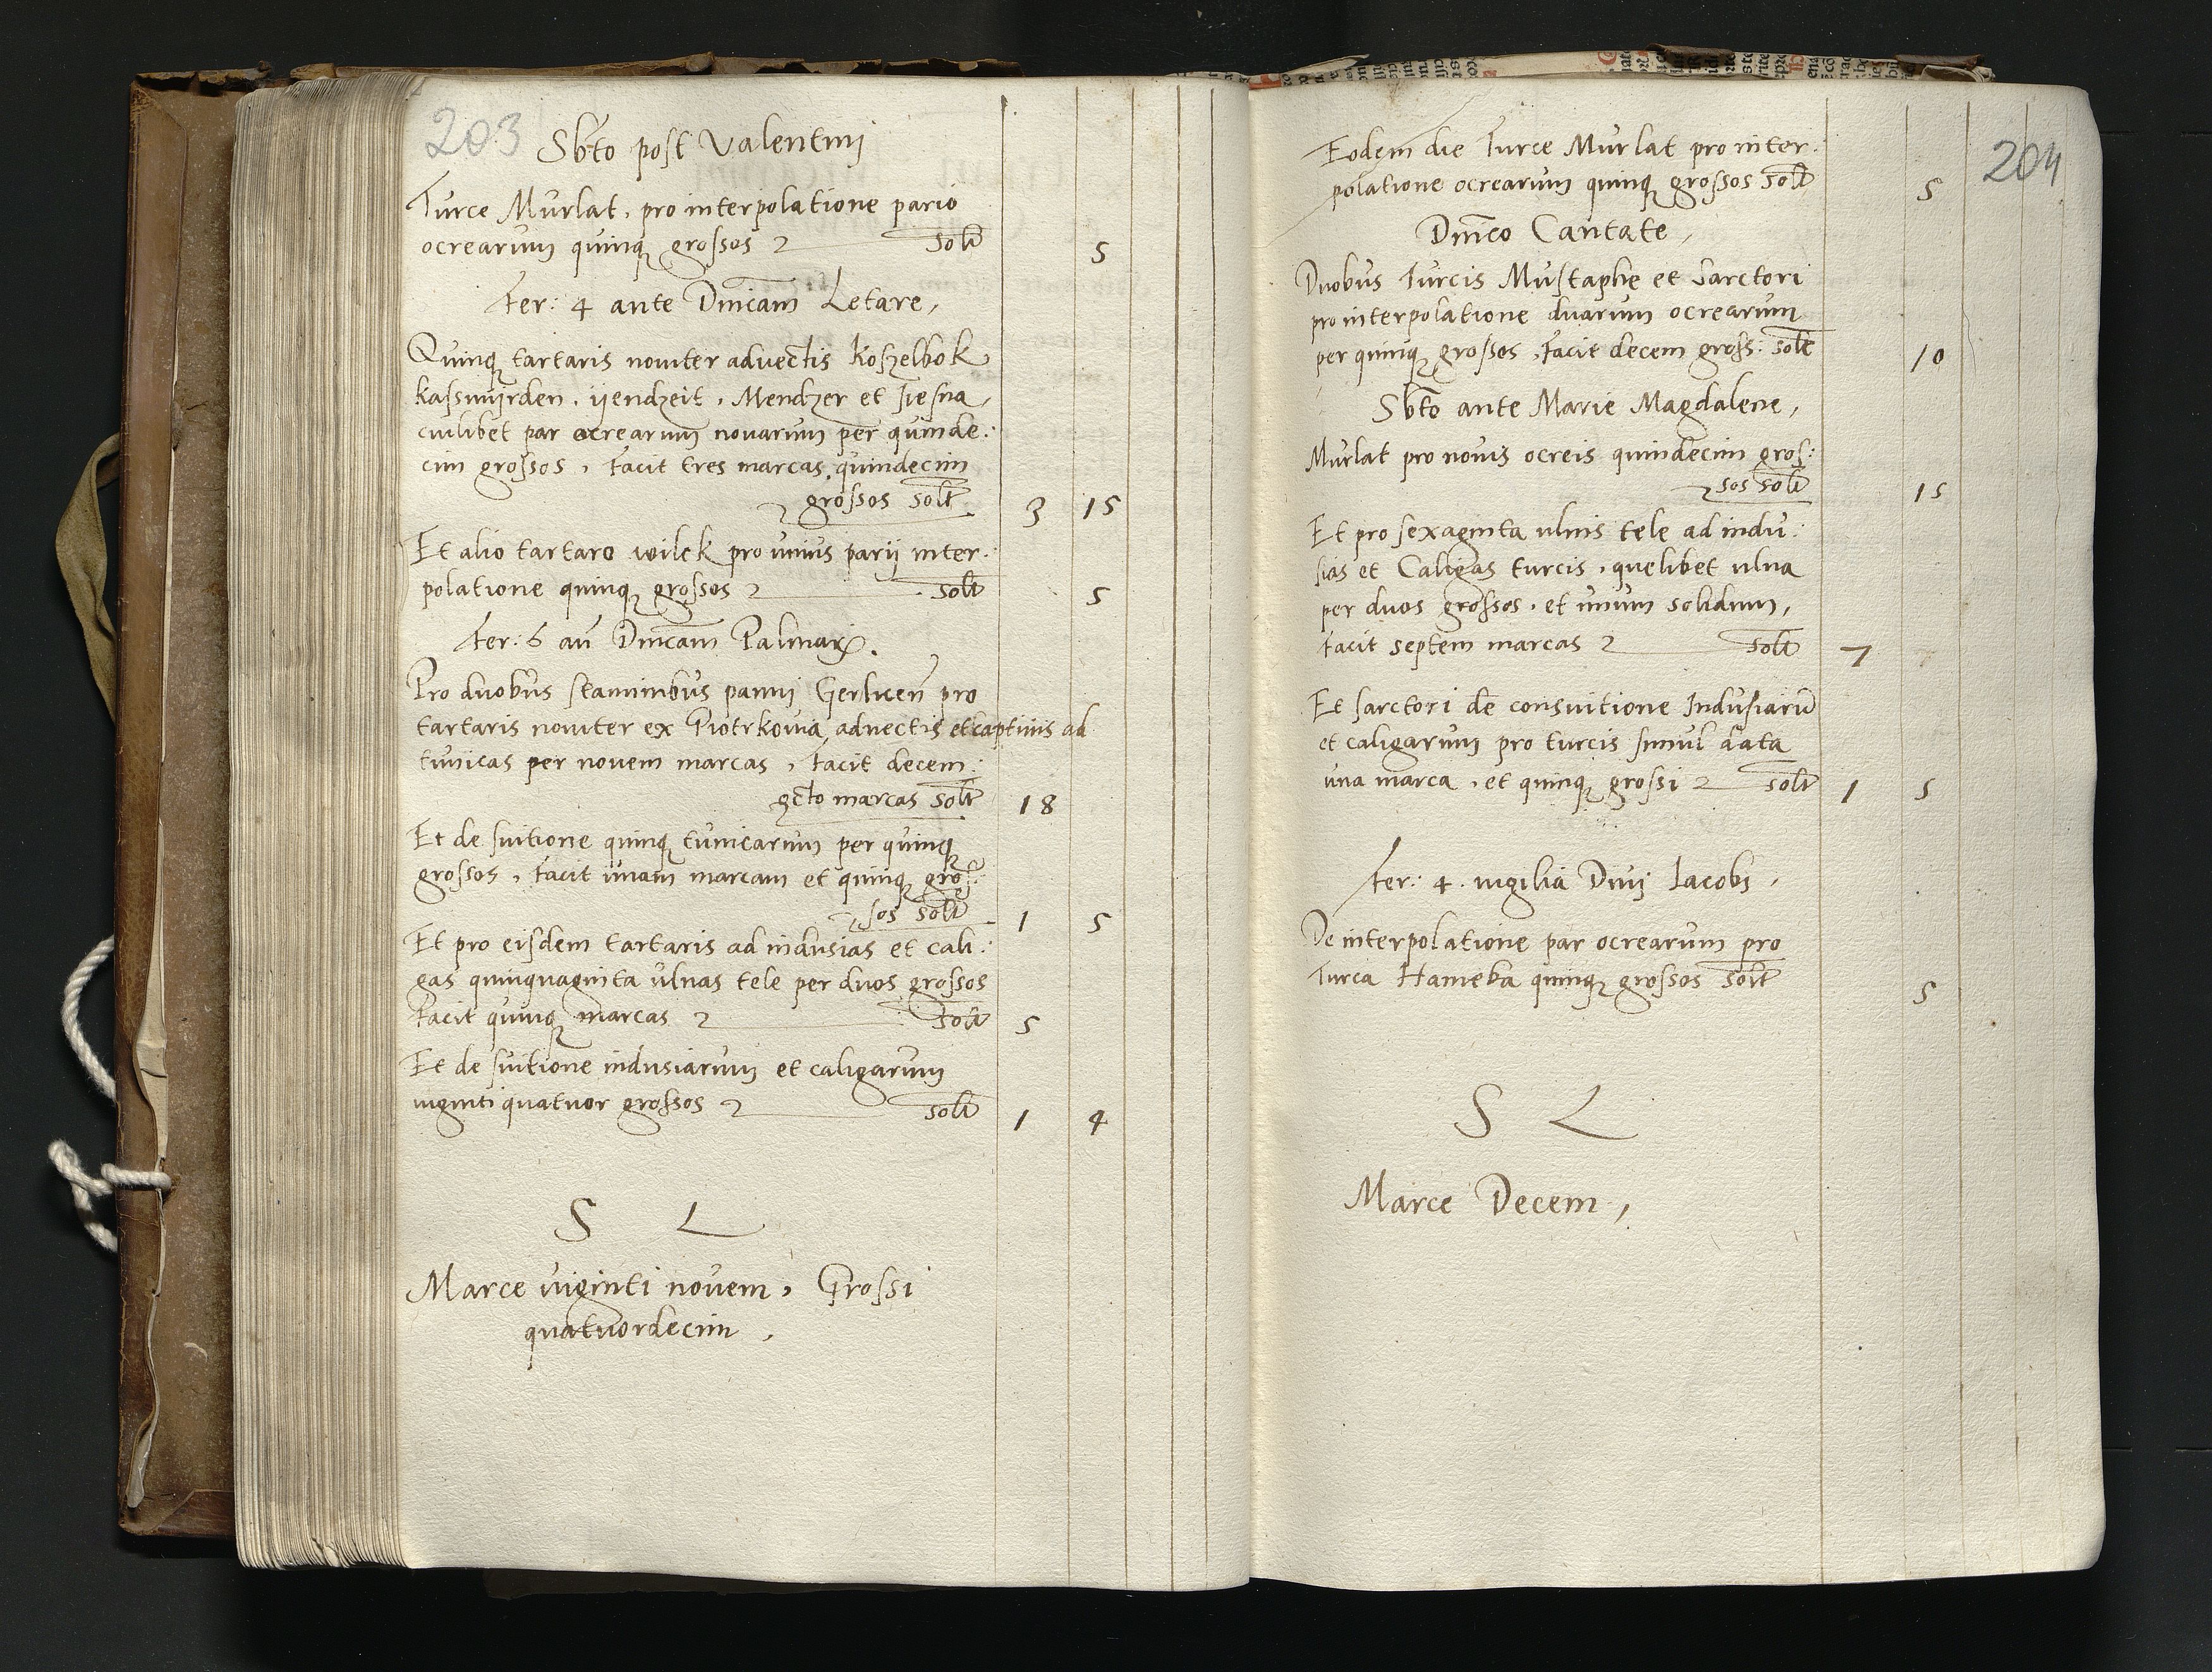 203
Sbto post Valentini
Turce Murlat, pro interpolatione pario
ocrearum quinq grossos solt 5
Fer: 4 ante Dnicam Letare,
Quinq tartaris noviter advectis Koszelbok
kassmyrden, yendzeit, Mendzer et Jesna,
cuilibet par ocrearum novarum per quinde:
cim grossos, facit tres marcas quindecim
grossos solt 3 15
Et alio tartaro wilck pro unius parij inter:
polatione quinq grossos solt 5
Fer: 6 an Dnicam Palmar.
Pro duobus staminibus panni Gerlicen pro
tartaris noviter ex Piotrkovia advectis et captivis ad
tunicas per novem marcas, facit decem:
octo marcas solt 18
Et de suitione quinq tunicarum per quinq
grossos, facit unam marcam et quinq gros:
sos solt 1 5
Et pro eisdem tartaris ad indusias et cali:
gas quinquaginta ulnas tele per duos grossos
facit quinq marcas solt 5
Et de suitione indusiarum et caligarum
viginti quatuor grossos solt 1 4
S L
Marce viginti novem, Grossi
quatuordecim,
204
Eodem die Turce Murlat pro inter:
polatione ocrearum quinq grossos solt 5
Dnico Cantate,
Duobus Turcis Mustaphe et Sarctori
pro interpolatione duarum ocrearum
per quinq grossos, facit decem gross: solt 10
Sbto ante Marie Magdalene,
Murlat pro novis ocreis quindecim gros:
sos solt 15
Et pro sexaginta ulnis tele ad indu:
sias et Caligas turcis, quelibet ulna
per duos grossos, et unum solidum,
facit septem marcas solt 7
Et sarctori de consuitione Indusiaru
et caligarum pro turcis simul data
una marca, et quinq grossi solt 1 5
Fer: 4. vigilia Divi Iacobi,
De interpolatione par ocrearum pro
Turca Hameka quinq grossos solt 5
S L
Marce Decem,